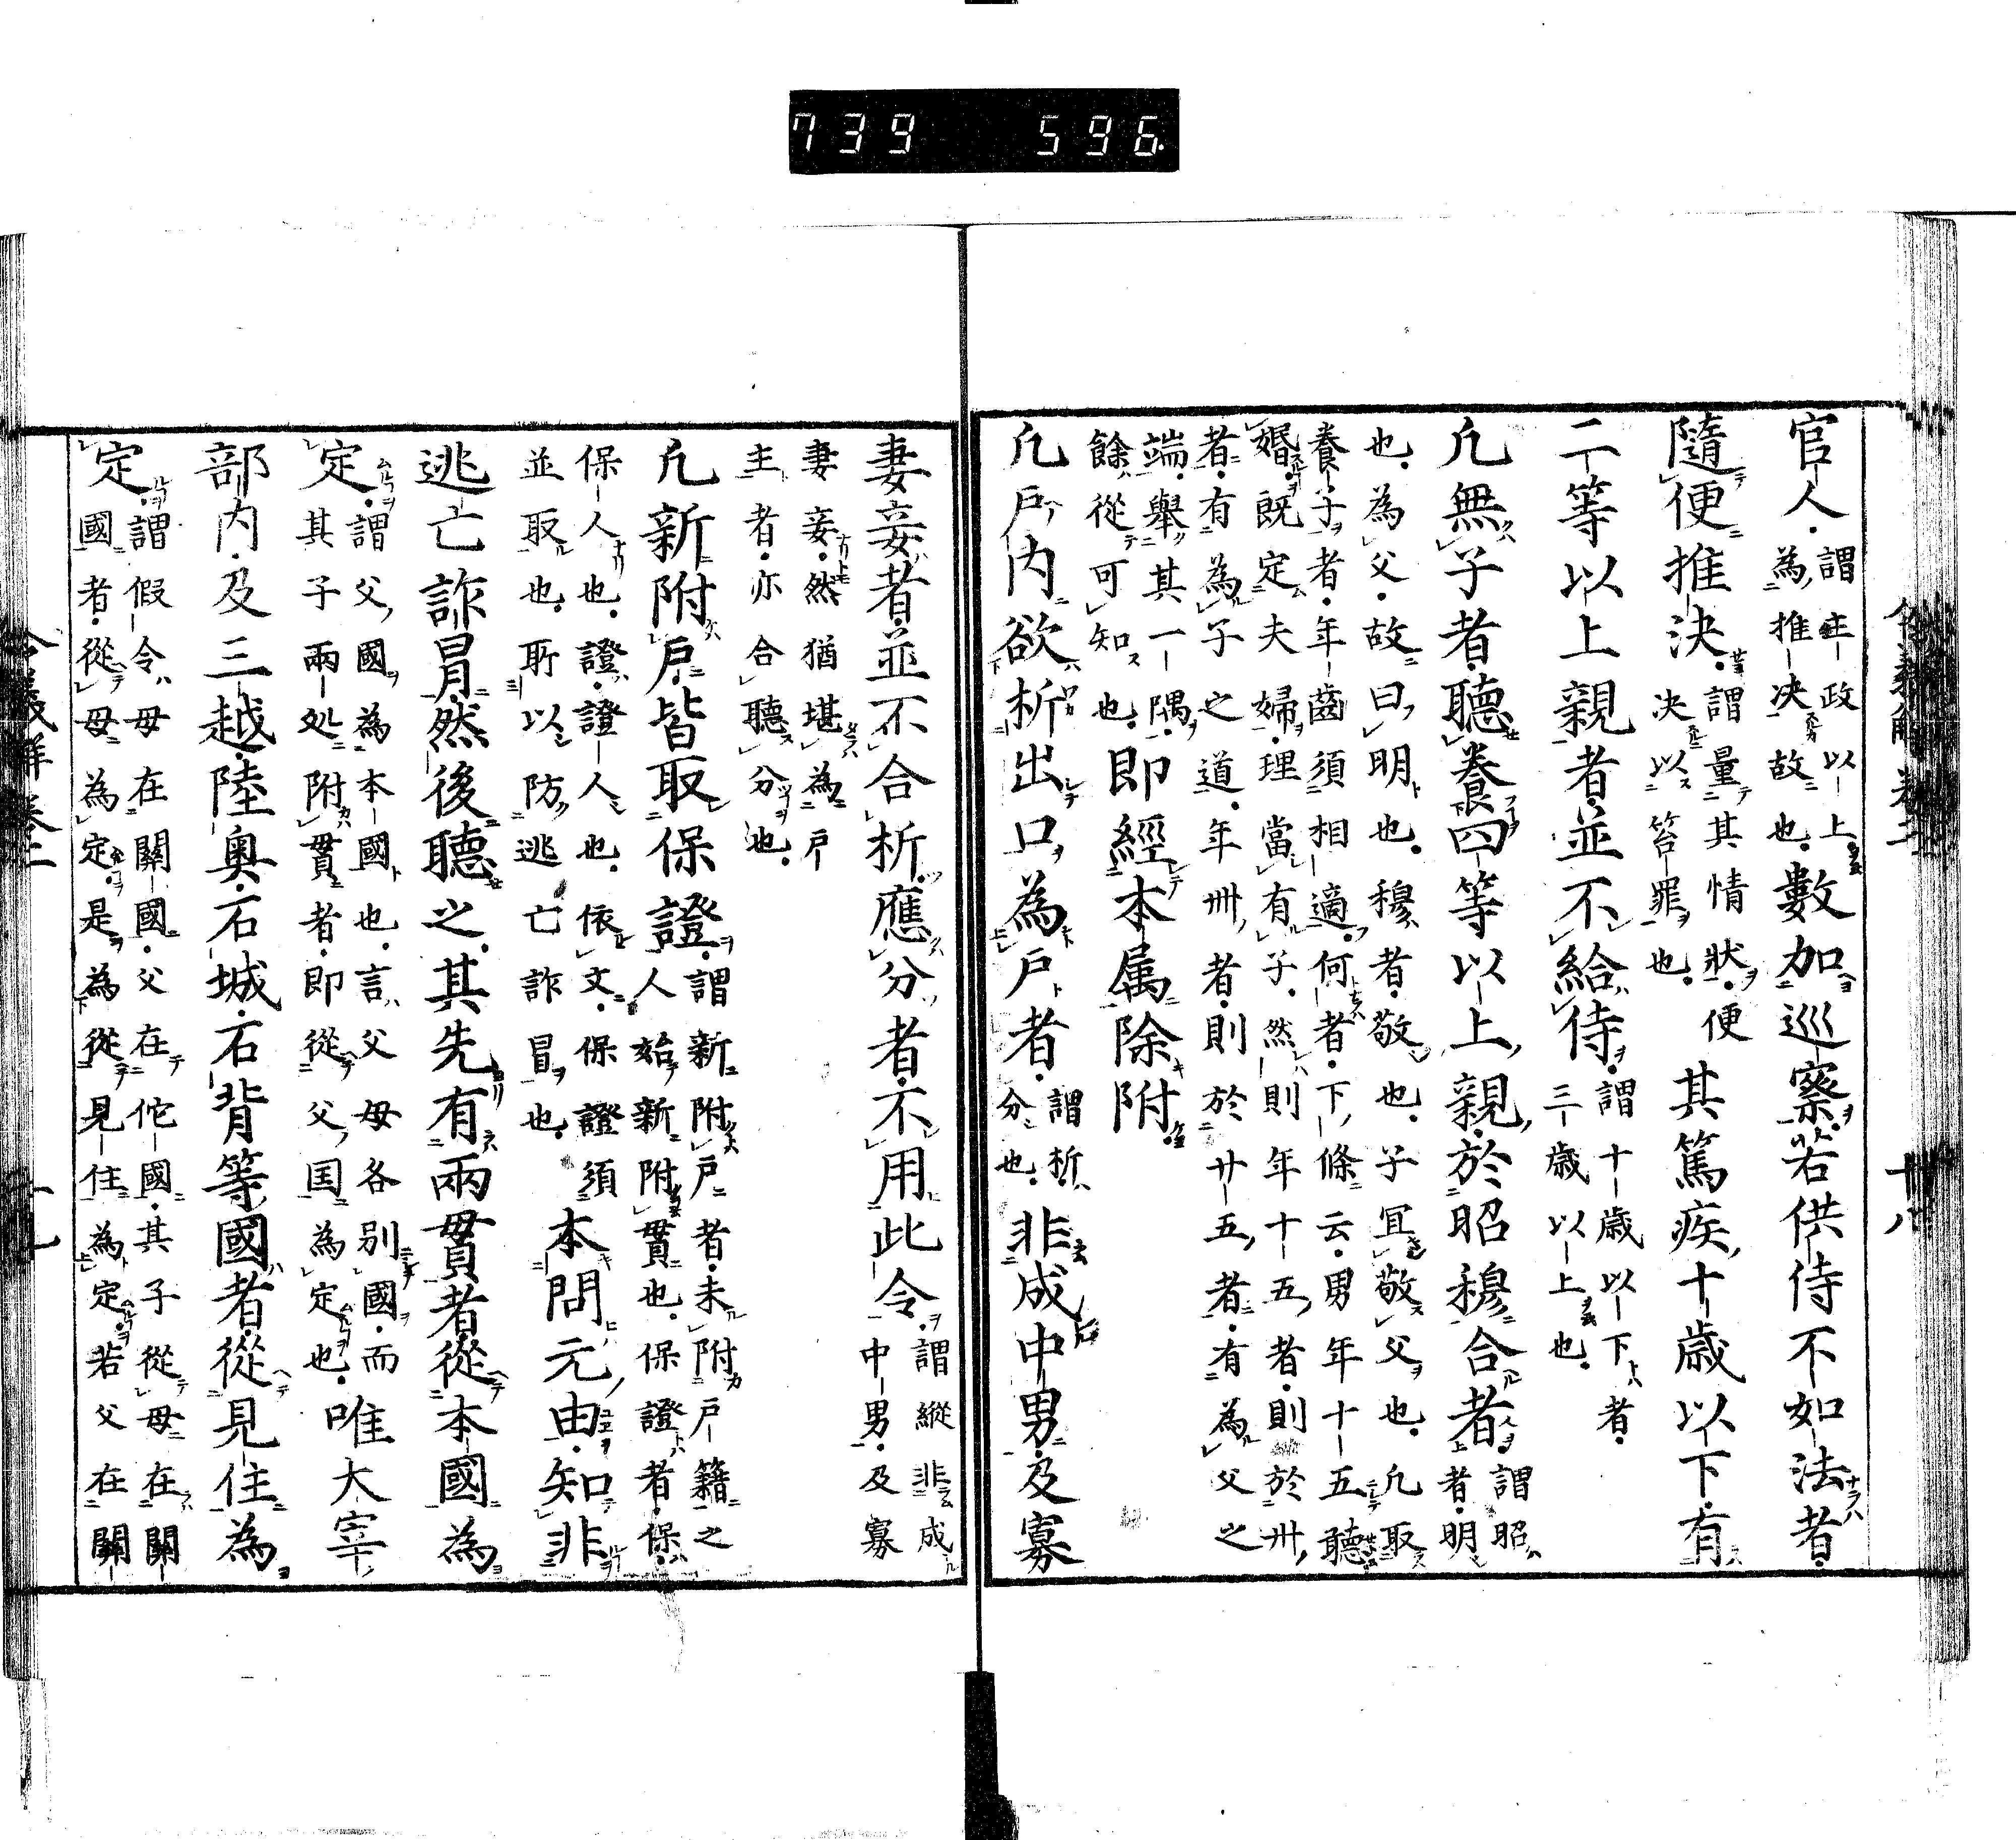 739 596
官人謂主政以上
為推决故也數加巡察若供侍不如法者
隨便推決謂量其情狀便
决以笞罪也其篤疾十歳以下有
二等以上親者並不給侍謂十歳以下者
三歳以上也
凢無子者聽養四等以上親於昭穆合者謂昭
者明
也為父故曰明也穆者敬也子冝敬父也凢取
養子者年齒須相適何者下條云男年十五聽
婚既定夫婦理當有子然則年十五者則於卅
者有為子之道年卅者則於廿五者有為父之
端舉其一隅
餘從可知也即經本属除附
凢戶内欲析出口為戶者謂析
分也非成中男及寡
妻妾者並不合析應分者不用此令謂縱非成
中男及寡
妻妾然猶堪為戶
主者亦合聽分也
凢新附戶皆取保證謂新附戶者未附戶籍之
人始新附貫也保證者保
保人也證證人也依文保證須
並取也所以防逃亡詐冒也本問元由知非
逃亡詐冒然後聽之其先有兩貫者從本國為
定謂父國為本國也言父母各别國而
其子兩処附貫者即從父国為定也唯大宰
部内及三越陸奥石城石背等國者從見住為
定謂假令母在關國父在佗國其子從母在關
國者從母為定是為從見住為定若父在關